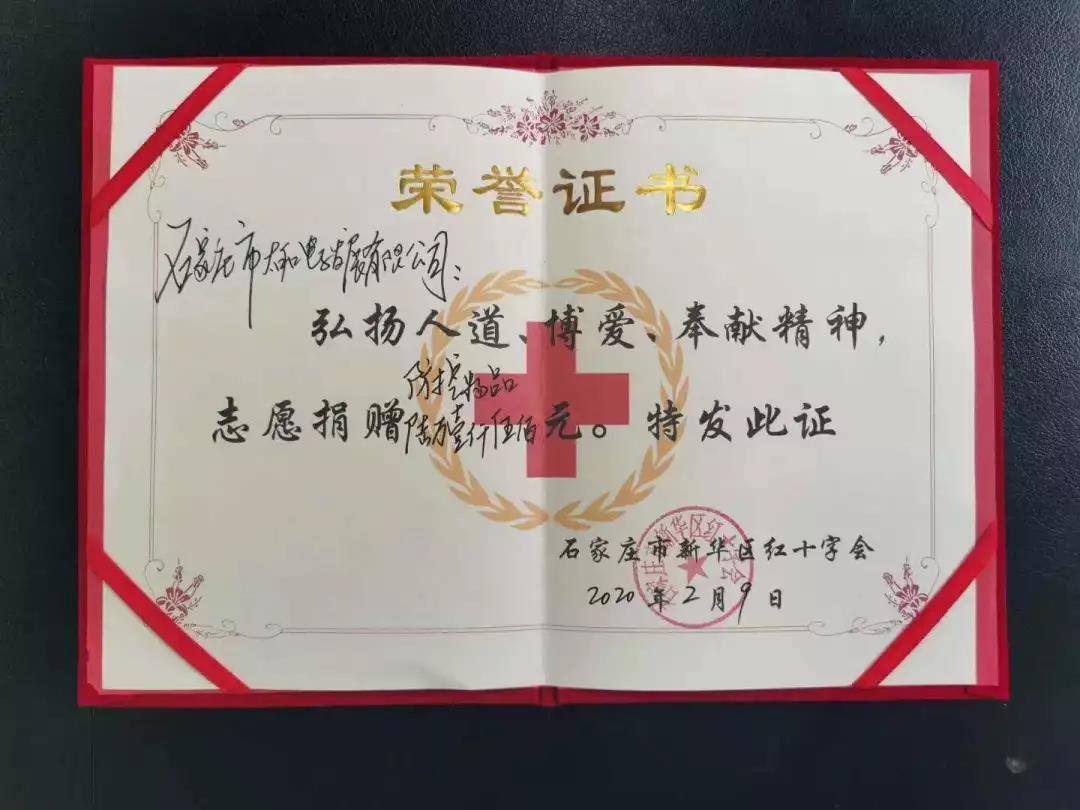 荣誉证书
石家庄市太和电子发展有限公司：
弘扬人道、博爱、奉献精神，
防控物品
志愿捐赠陆万壹仟伍佰元。特发此证
石家庄市新华区红十字会
2020年2月9日
石家庄市新华区红十字会